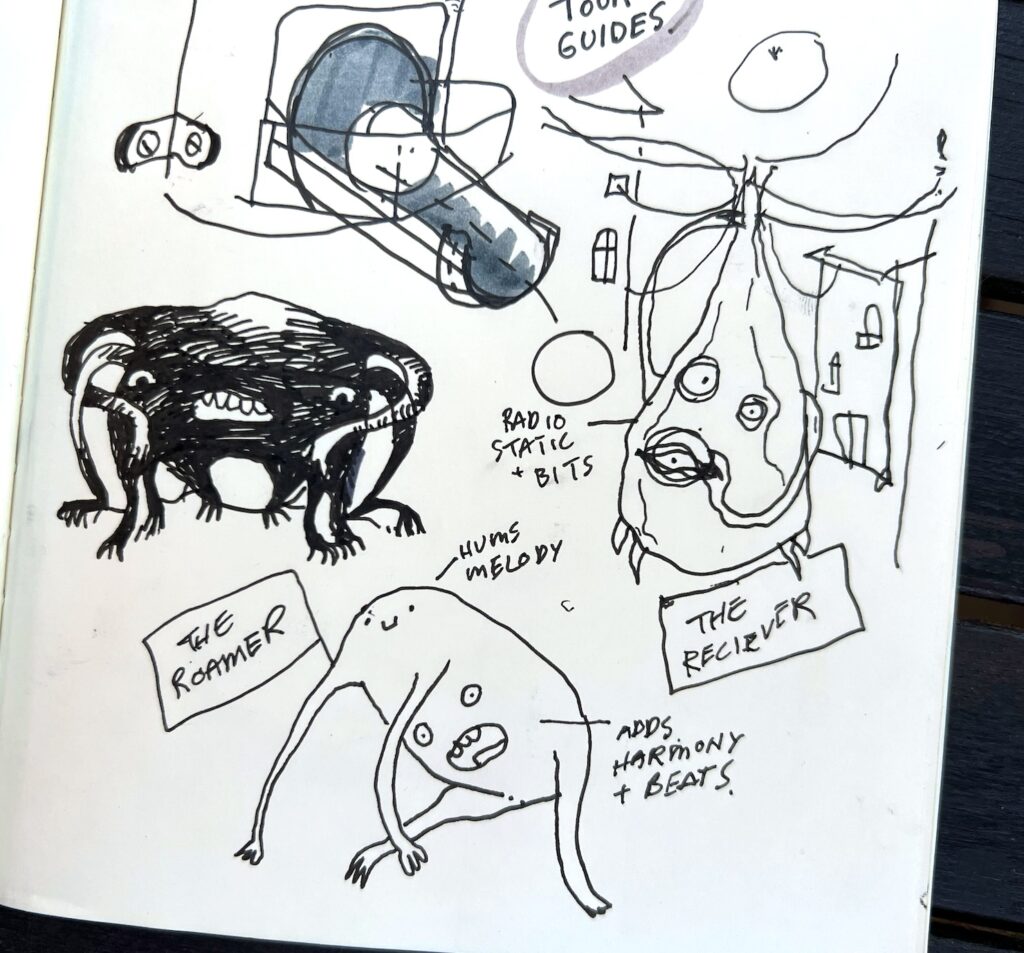 TOUR
GUIDES
RADIO
STATIC
+ BITS
HUMS
MELODY
THE
ROAMER
THE
RECIEVER
ADDS
HARMONY
+ BEATS.